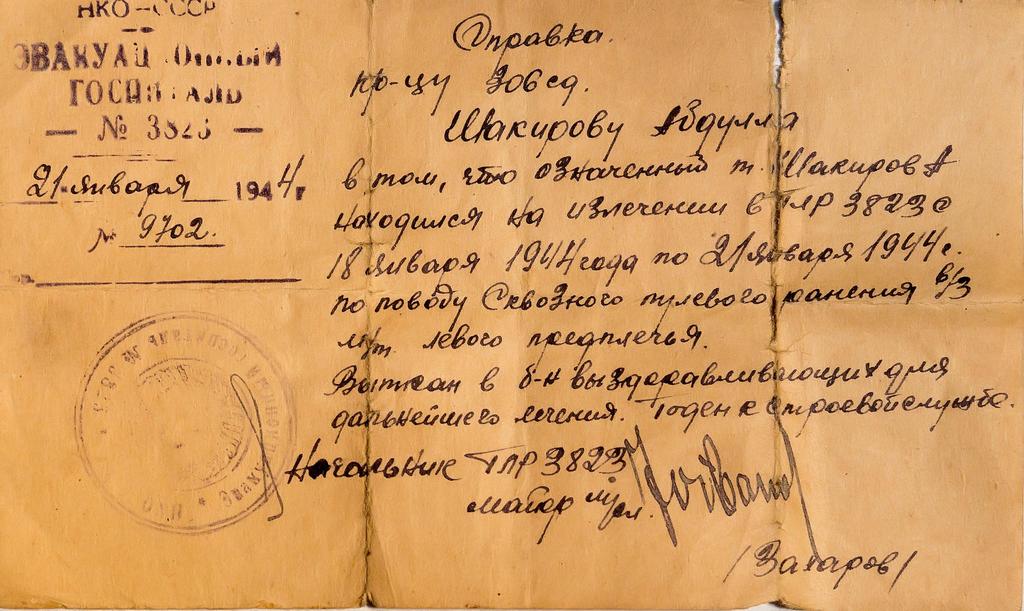 НКО-СССР
ЭВАКУАЦИОННЫЙ
ГОСПИТАЛЬ
— № 3823 —
21 января 1944 г
№ 9702.
Справка.
кр-цу Зовсд.
Шакирову Абдулла
в том, что означенный т. Шакиров А
находился на излечении в ГЛР 3823 с
18 января 1944 года по 21 января 1944 г.
по поводу Сквозного пулевого ранения в/3
левого предплечья.
Выписан в б-н выздоравливающих для
дальнейшего лечения. Годен к строевой службе.
Начальник ГЛР 3823
майор м/сл.
/Захаров/